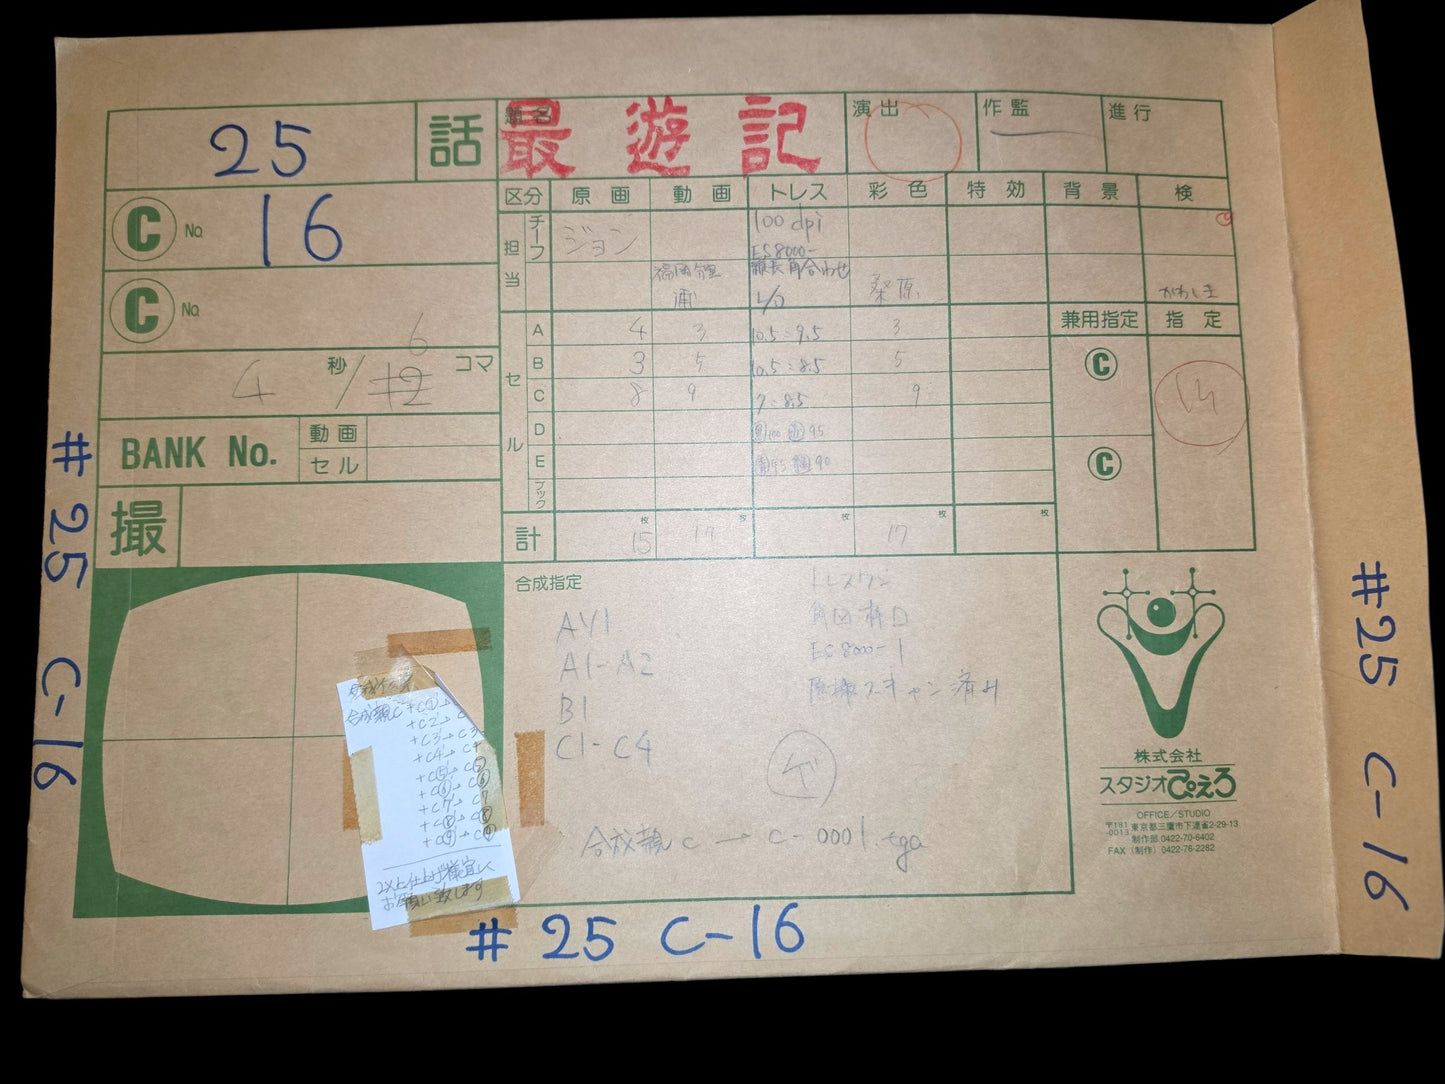 25
話
題名
最遊記
演出
作監
進行
C No. 16
C No.
4 秒 / 12 6 コマ
BANK No.
動画
セル
撮
区分 原画 動画 トレス 彩色 特効 背景 検
担当
チーフ
ジョン
100 dpi
ES8000-
L/O
桑原
かわしま
兼用指定 指定
C
C
セル
A 4 3 10.5:9.5 3
B 3 5 10.5:8.5 5
C 8 9 9:8.5 9
D
E
ブック
計 15枚 17枚 枚 17枚 枚
合成指定
AY1
A1-A2
B1
C1-C4
ES8000-1
スキャン済み
合成親C → C-0001.tga
合成親C +C①→
+C2→C
+C3→C3
+C4→C4
+C⑤→C⑤
+C⑥→C⑥
+C7→C7
+C⑧→C⑧
+C⑨→C⑨
以上仕上げ様宜しく
お願い致します
# 25 C-16
# 25 C-16
#25 C-16
株式会社
スタジオぴえろ
OFFICE/STUDIO
〒181-0013 東京都三鷹市下連雀2-29-13
制作部 0422-70-6402
FAX (制作) 0422-76-2282